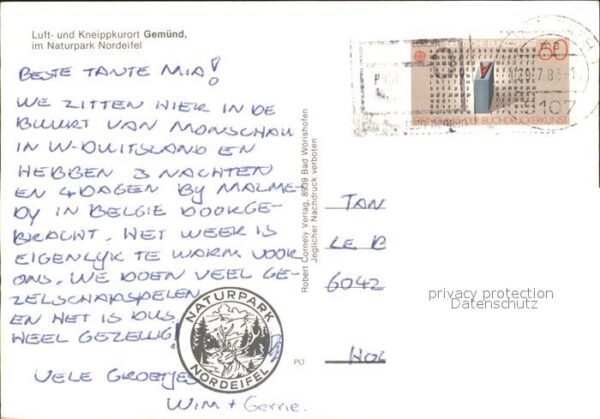 Luft- und Kneippkurort Gemünd,
im Naturpark Nordeifel
BESTE TANTE MIA!
WE ZITTEN HIER IN DE
BUURT VAN MONSCHAU
IN W-DUITSLAND EN
HEBBEN 3 NACHTEN
EN 4 DAGEN BY MALME-
DY IN BELGIE DOORGE-
BRACHT. HET WEER IS
EIGENLYK TE WARM VOOR
ONS. WE DOEN VEEL GE-
ZELSCHAPSPELEN
EN HET IS DUS
HEEL GEZELLIG!
VELE GROETJES
WIM + Gerrie.
NATURPARK
NORDEIFEL
Robert Cornely Verlag, 8939 Bad Wörishofen
Jeglicher Nachdruck verboten
PO
60
BUCHDRUCKERKUNST
5107
TAN
LE B
6042
HOL
privacy protection
Datenschutz